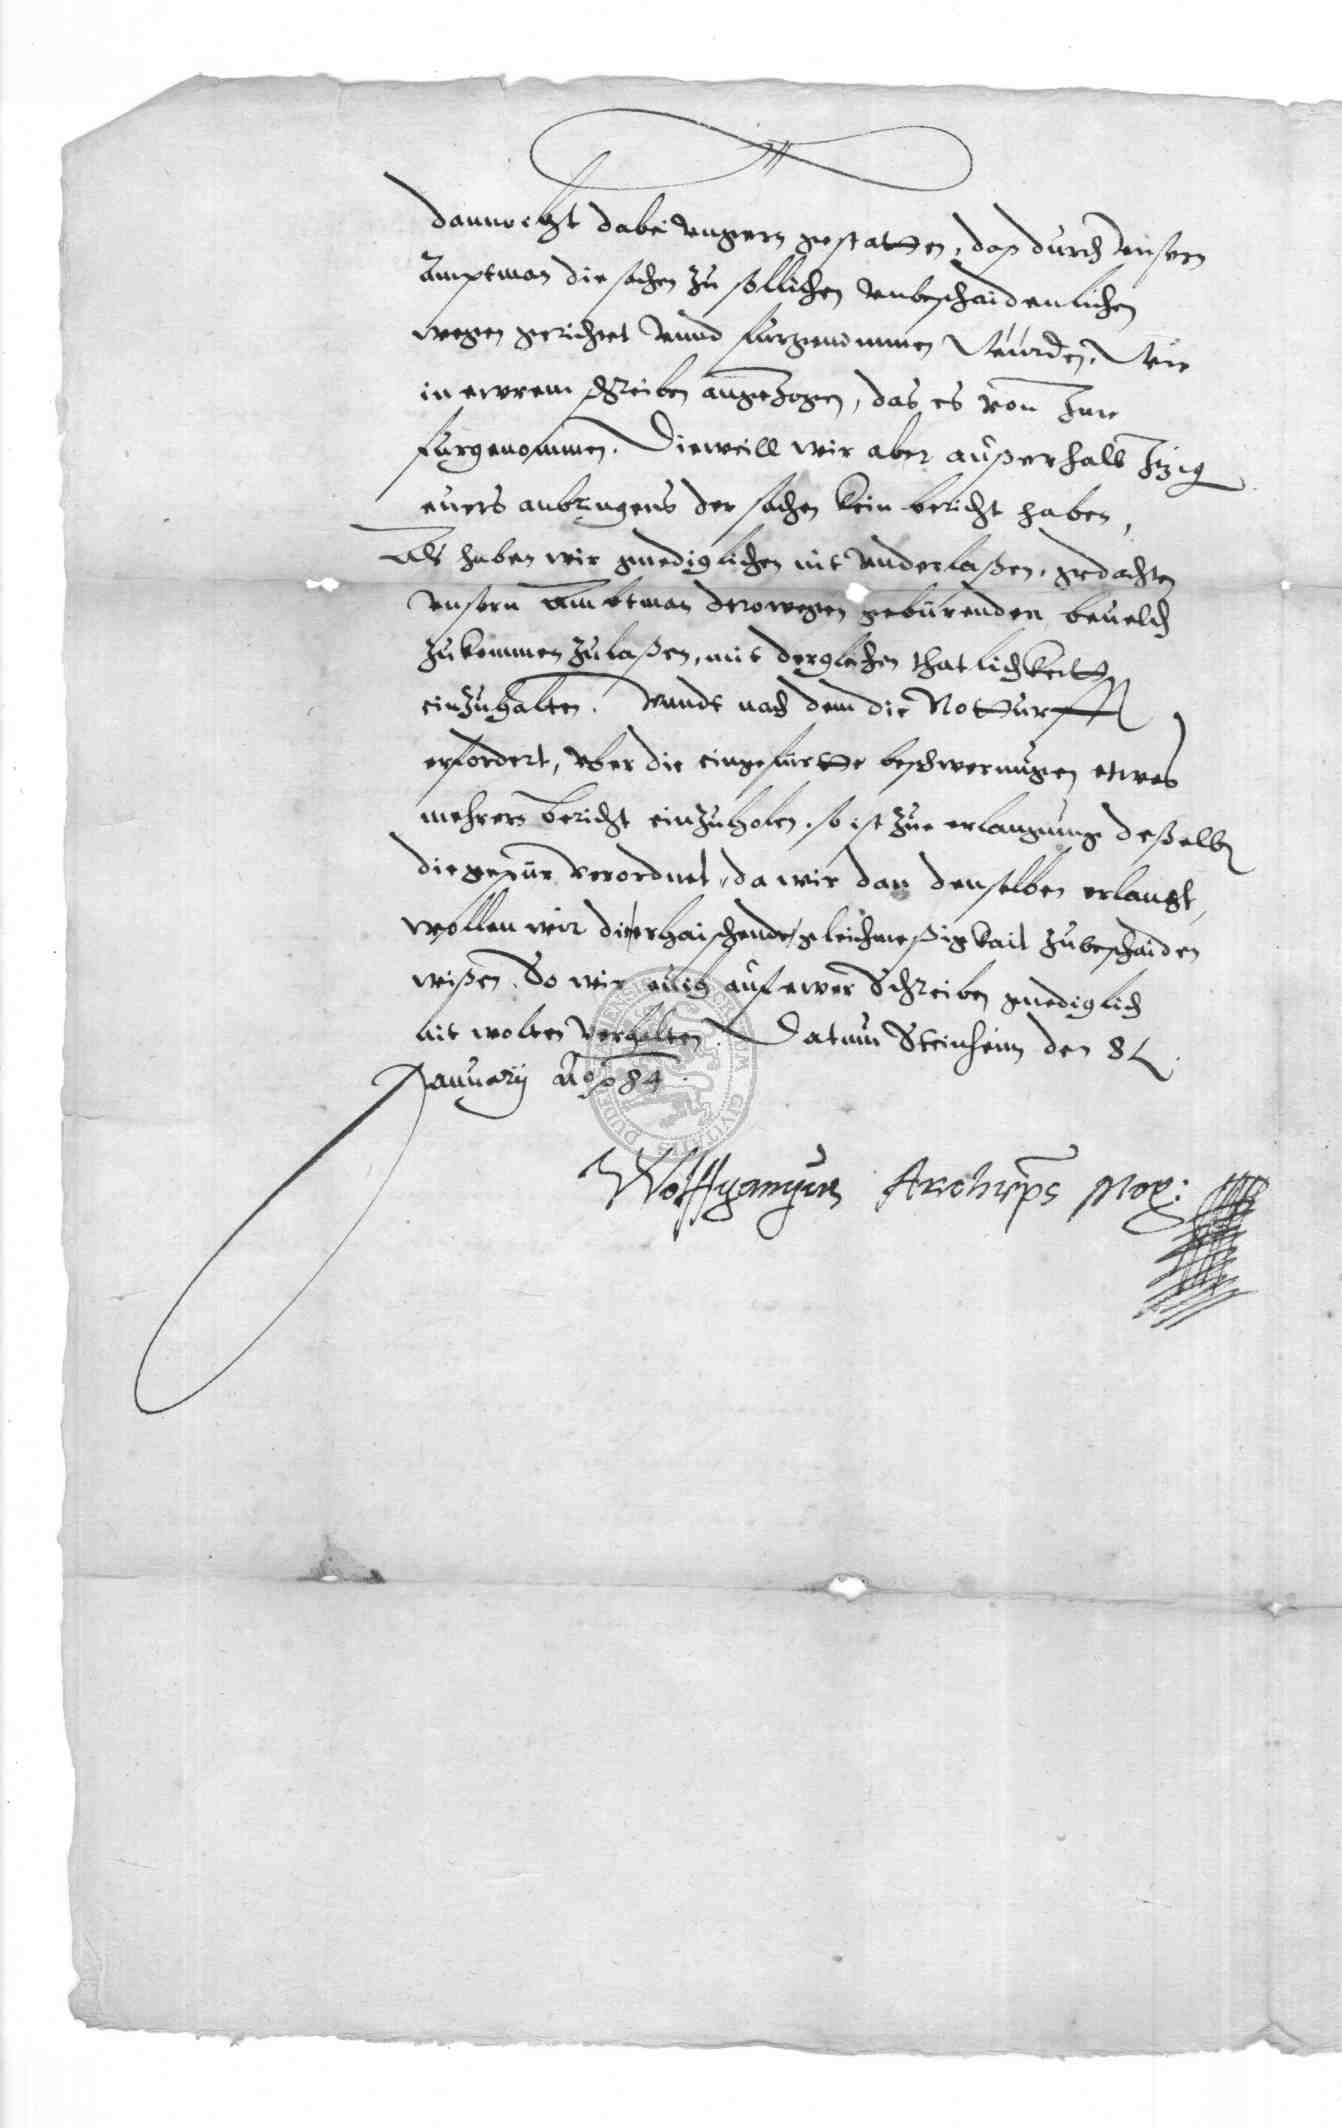 dannocht dabei vngern gestatten, das durch vnsern
Amptman die sachen zu sollichen vnbeschaidenlichen
wegen gerichtet vnnd furgenommen wurden, wie
in ewrem schreiben angezogen, das es von Ime
furgenommen. Dieweill wir aber außerhalb Itzig
euers anbrngens der sachen kein bericht haben,
Als haben wir gnediglichen nit vnderlaßen, gedachten
vnsern Ambtman derowegen gebürenden beuelch
zukommen zulaßen, mit dergleichen thatlichkeitt
einzuhalten. Vnndt nach dem die Notturfft
erfordert, vber die eingefürtte beschwerungen etwas
mehrern bericht einzuholen, so ist zue erlangung deßelb
die gepür verordnet, da wir dan denselben erlangt,
wollen wir die erhaischende gleichmeßigkait zubeschaiden
wißen. So wir euch auf ewer Schreiben gnediglich
nit wolten verhalten. Datum Steinheim den 8t
January Ao 84.
Wolffgangus Archieps Mog:
CIVITATIS